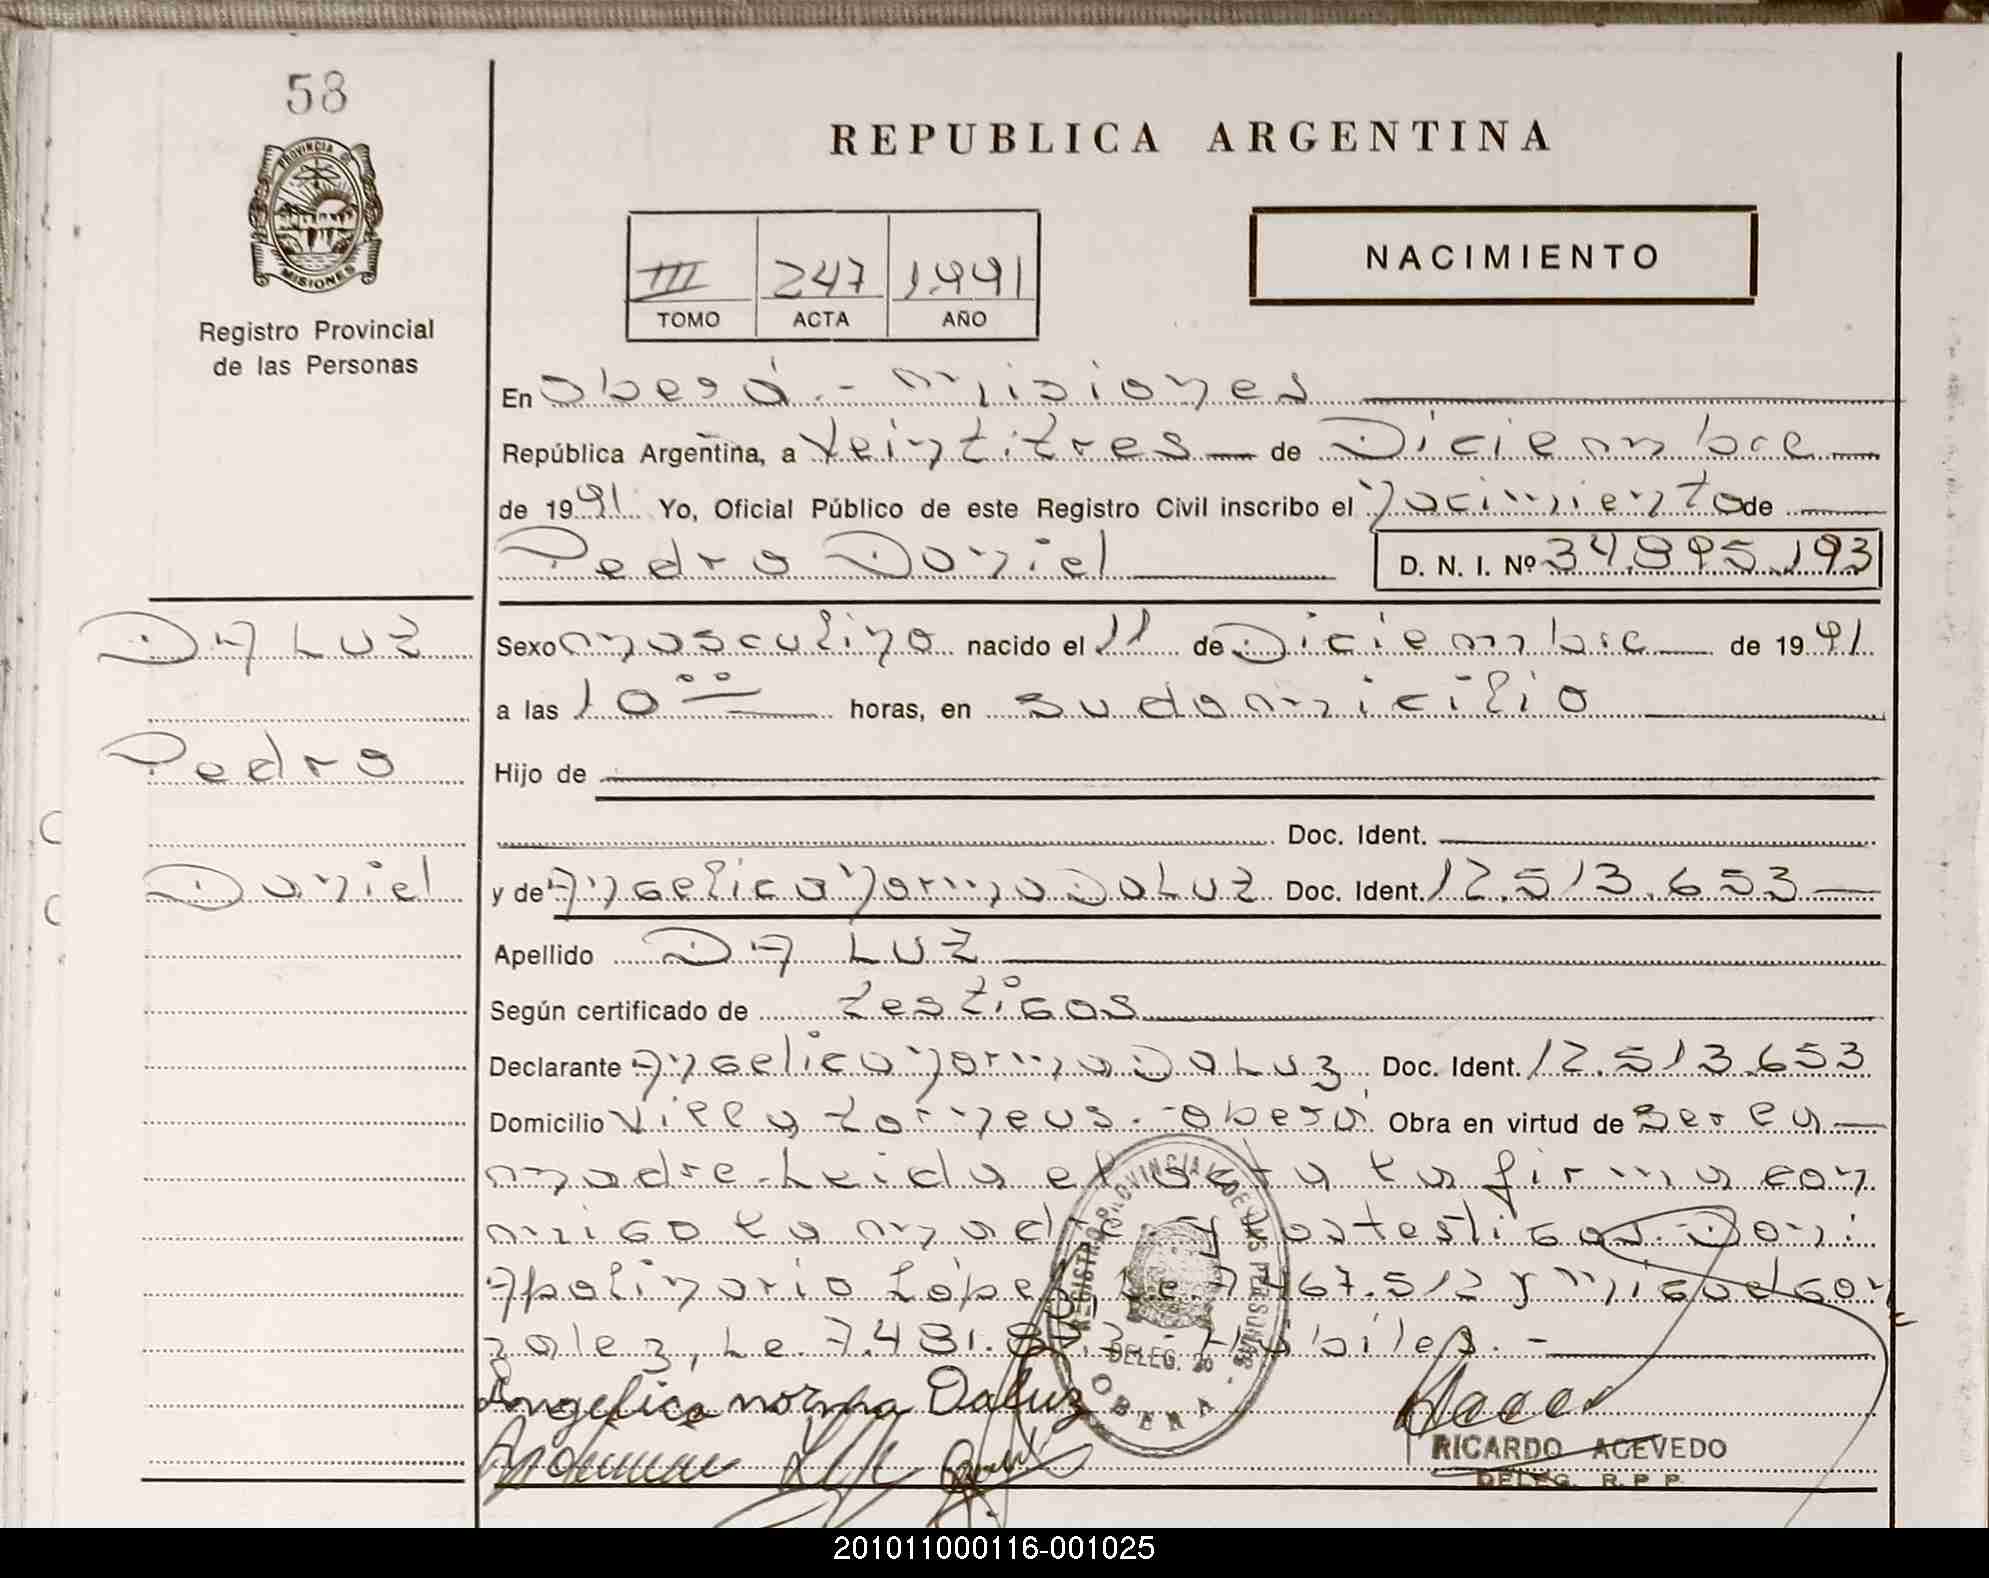 58
PROVINCIA DE
MISIONES
Registro Provincial
de las Personas
REPUBLICA ARGENTINA
NACIMIENTO
III 247 1991
TOMO ACTA AÑO
En Oberá - Misiones
República Argentina, a Veintitres de Diciembre
de 1991 Yo, Oficial Público de este Registro Civil inscribo el Nacimiento de
Pedro Daniel D. N. I. Nº 34.895.193
DA LUZ
Pedro
Daniel
Sexo masculino nacido el 11 de Diciembre de 1991
a las 10 00 horas, en su domicilio
Hijo de
Doc. Ident.
y de Angelica Norma Da Luz Doc. Ident. 12.513.653
Apellido DA LUZ
Según certificado de testigos
Declarante Angelica Norma Da Luz Doc. Ident. 12.513.653
Domicilio Villa - Oberá Obra en virtud de ser la
madre. Leida el acta la firma con
migo la madre y los testigos. Don:
Apolinario López, L.e. 7.467.512 y Miguel Gon
zalez, L.e. 7.481. Hábiles. -
REGISTRO PROVINCIAL DE LAS PERSONAS
DELEG.
OBERA
Angelica norma Daluz
RICARDO ACEVEDO
DELEG. R. P. P.
201011000116-001025